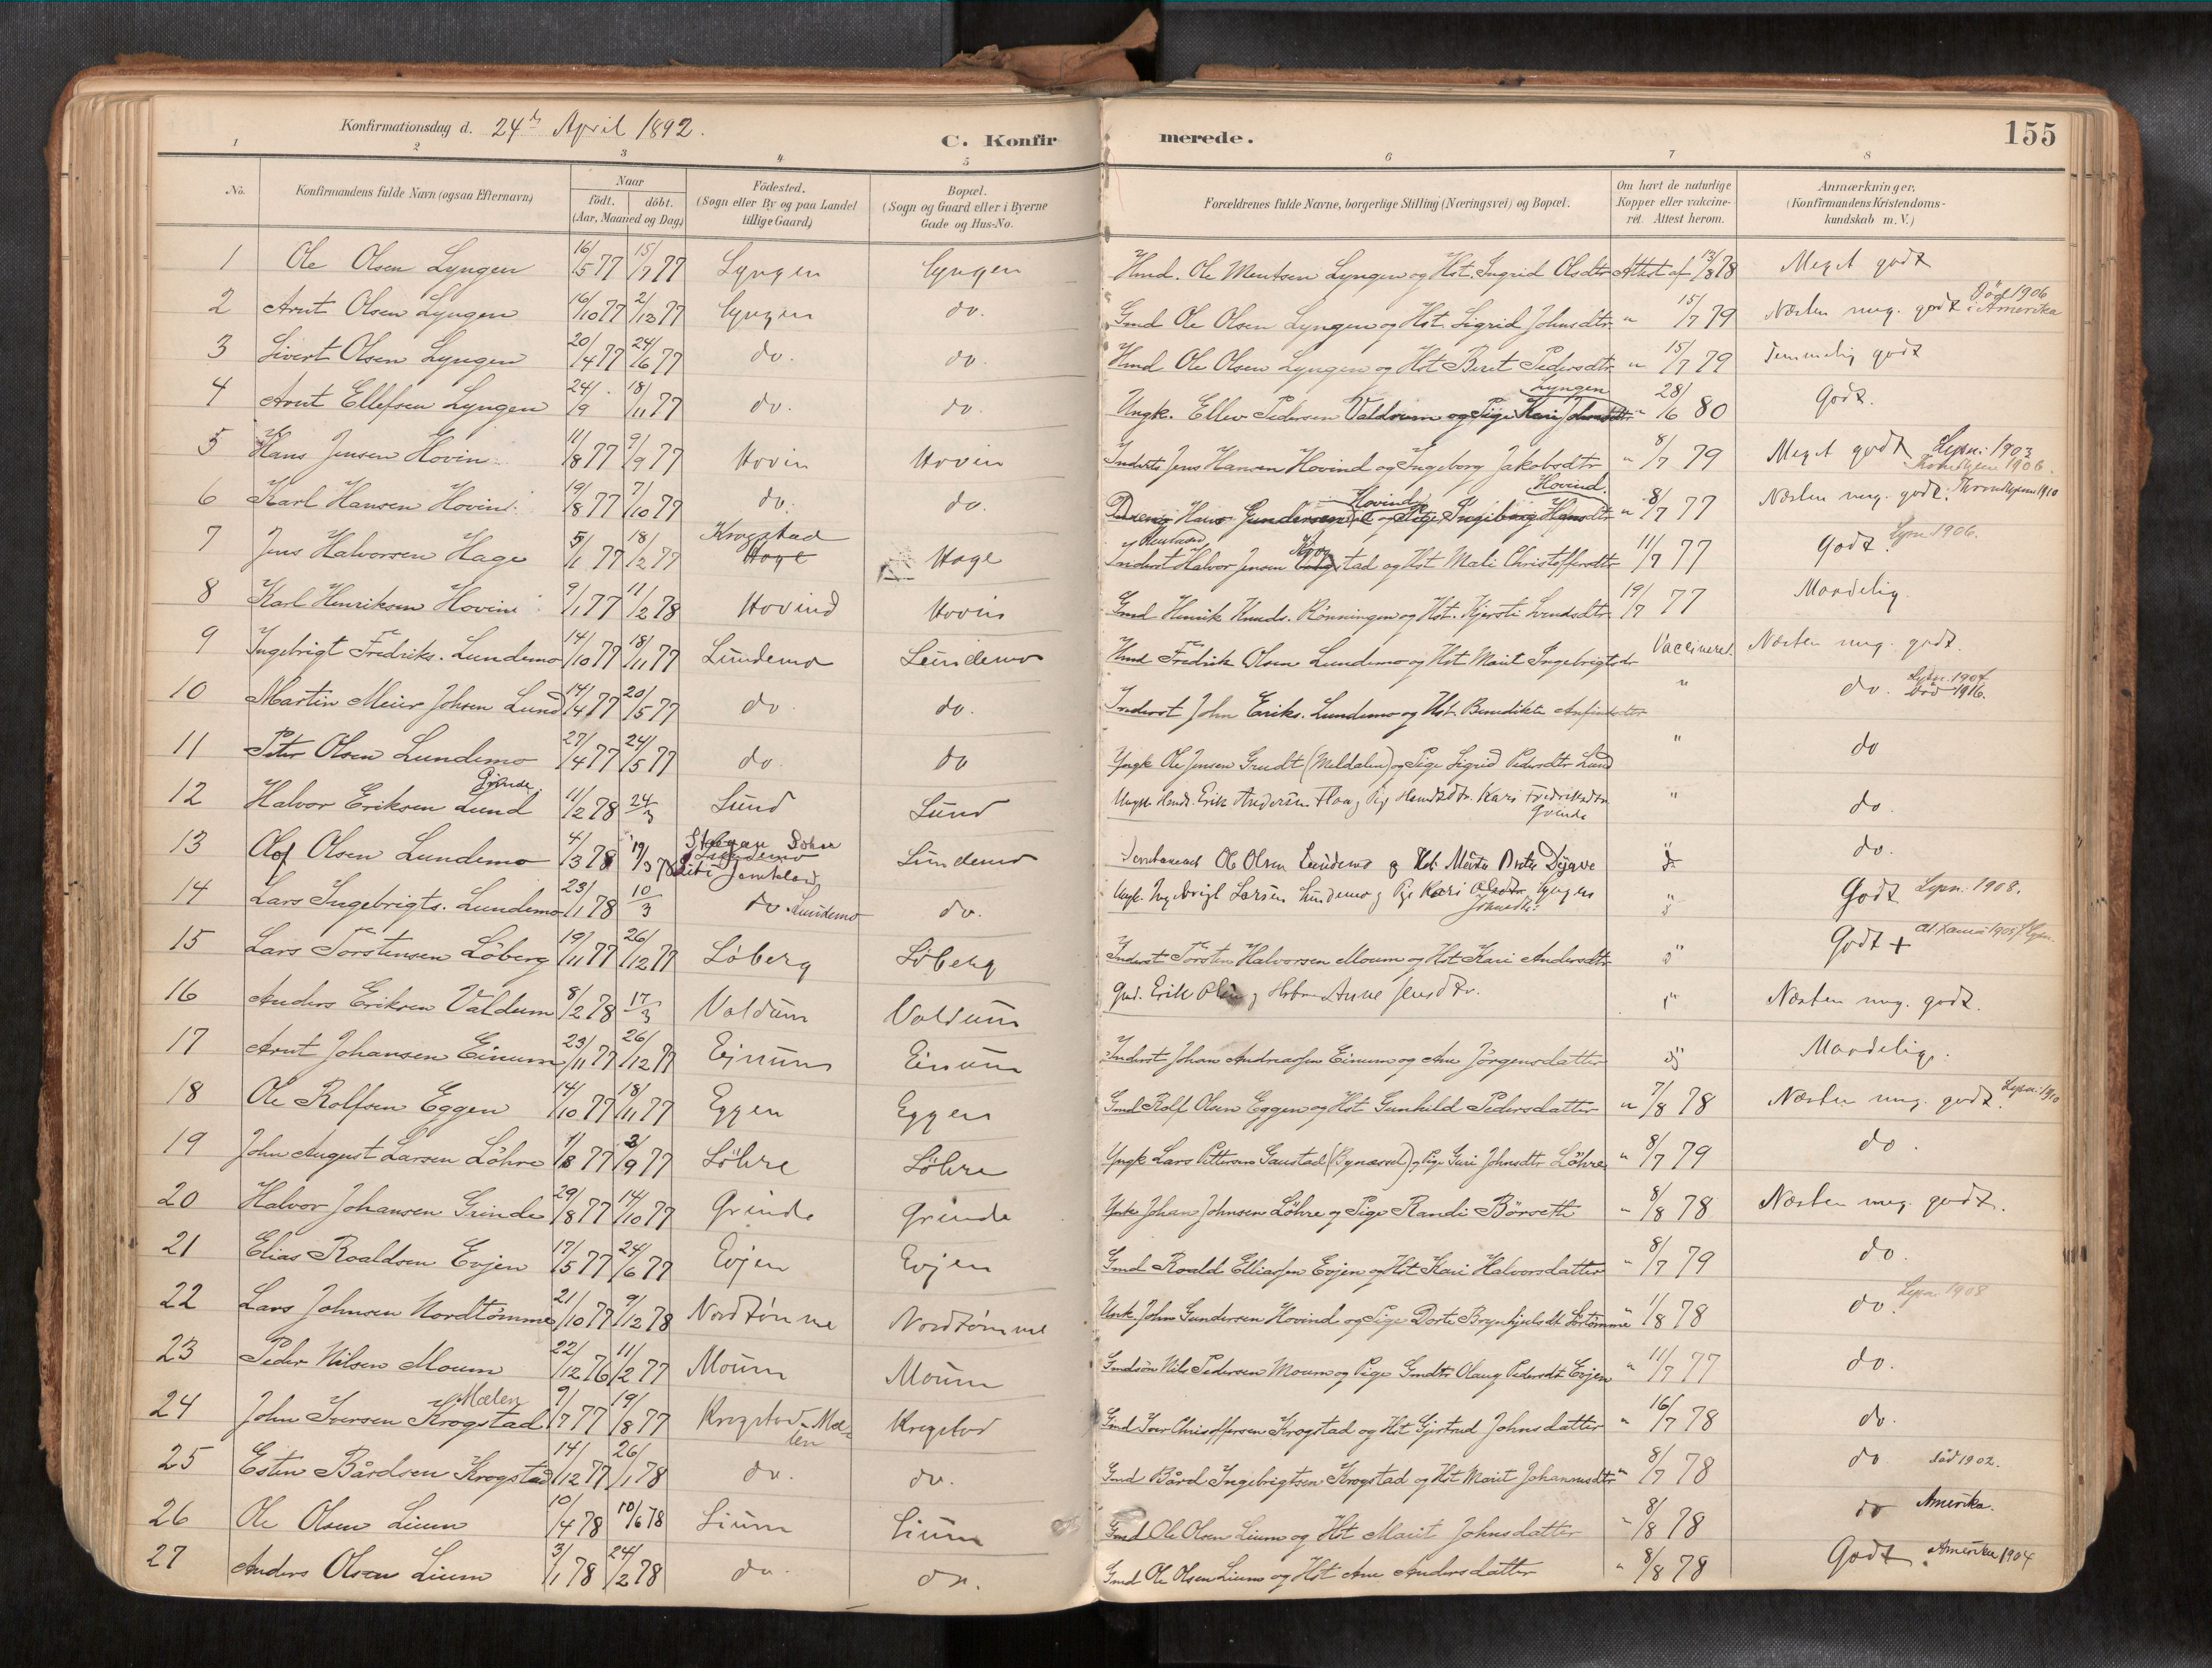 Konfirmationsdag d. 24de April 1892.
C. Konfir merede. 155
1 2 3 4 5 6 7 8
No. Konfirmandens fulde Navn (ogsaa Efternavn) Naar födt. döbt. (Aar, Maaned og Dag) Födested. (Sogn eller By og paa Landet tillige Gaard) Bopæl. (Sogn og Gaard eller i Byerne Gade og Hus-No. Forældrenes fulde Navne, borgerlige Stilling (Næringsvei) og Bopæl. Om havt de naturlige Kopper eller vakcineret. Attest herom. Anmærkninger. (Konfirmandens Kristendomskundskab m. V.)
1 Ole Olsen Lyngen 16/5 77 15/7 77 Lyngen Lyngen Hmd. Ole Mentsen Lyngen og Hst. Ingrid Olsdtr Attest af 13/8 78 Meget godt
2 Arnt Olsen Lyngen 16/10 77 2/12 77 Lyngen do. Gmd Ole Olsen Lyngen og Hst Sigrid Johnsdtr. " 15/7 79 Næsten meg. godt Död 1906 i Amerika
3 Sivert Olsen Lyngen 20/4 77 24/6 77 do. do. Hmd Ole Olsen Lyngen og Hst Beret Pedersdtr. " 15/7 79 Temmelig godt
4 Arnt Ellefsen Lyngen 24/9 18/11 77 do. do. Ungk. Ellev Pedersen Valdrum og Pige Kari Johnsdtr Lyngen " 28/6 80 Godt.
5 Hans Jensen Hovin 11/8 77 9/9 77 Hovin Hovin Inderst Jens Hansen Hovind og Ingeborg Jakobsdtr " 8/7 79 Meget godt Lysn: 1903 Trondhjem 1906.
6 Karl Hansen Hovin 19/8 77 7/10 77 do. do. Hans Gundersen Hovind og Pige Ingeborg Hansdtr Hovind. " 8/7 77 Næsten meg. godt. Throndhjem 1910
7 Jens Halvorsen Hage 5/1 77 18/2 77 Krogstad Hage Hage Inderst Halvor Jensen Krogstad og Hst Mali Christoffersdtr 11/7 77 Godt. Lysn 1906.
8 Karl Henriksen Hovin 9/1 77 11/2 78 Hovind Hovin Gmd Henrik Knuds. Rönningen og Hst. Kjersti Svendsdtr. 19/7 77 Maadelig.
9 Ingebrigt Fredriks. Lundemo 14/10 77 18/11 77 Lundemo Lundemo Hmd Fredrik Olsen Lundemo og Hst Marit Ingebrigtsdr Vaccineret. Næsten meg. godt.
10 Martin Meier Johsen Lund 14/4 77 20/5 77 do. do. Inderst John Eriks. Lundemo og Hst. Benedikte " do. Lysn. 1904 Död 1916.
11 Peter Olsen Lundemo 27/4 77 24/5 77 do. do Yngk Ole Jensen Grudt (Meldalen) og Pige Sigrid Pedersdtr Lund " do
12 Halvor Eriksen Lund Grinde 11/2 78 24/3 Lund Lund Ungk Erik Andersen Floa og Pige Kari Fredriksdtr. Grinde " do.
13 Olof Olsen Lundemo 4/3 78 19/3 78 Lundemo Jemtland Lundemo Ole Olsen Lundemo og Hst. " do.
14 Lars Ingebrigts. Lundemo 23/1 78 10/3 do. Lundemo do. Ungk. Ingebrigt Larsen Lundemo og Pige Kari Olsdtr. Lyngen Johnsdtr. " Godt Lysn. 1908.
15 Lars Torstensen Löberg 19/11 77 26/12 77 Löberg Löberg Inderst Torsten Halvorsen Moum og Hst Kari Andersdtr. " Godt +
16 Anders Eriksen Valdum 8/2 78 17/3 Valdum Valdum Gmd. Erik Olsen og Hstr. Anne Jensdtr. " Næsten meg. godt.
17 Arnt Johansen Einum 23/11 77 26/12 77 Einum Einum Inderst Johan Andreassen Einum og Ane Jörgensdatter " Maadelig.
18 Ole Rolfsen Eggen 14/10 77 18/11 77 Eggen Eggen Gmd Rolf Olsen Eggen og Hst Gunhild Pedersdatter " 7/8 78 Næsten meg. godt. Lysn: 1910
19 John August Larsen Löhre 1/8 77 2/9 77 Löhre Löhre Yngk Lars Pettersen Gaustad (Bynæsset) og Pige Guri Johnsdtr Löhre " 8/7 79 do.
20 Halvor Johansen Grinde 29/8 77 14/10 77 Grinde Grinde Ynk Johan Johnsen Löhre og Pige Randi Börseth " 8/8 78 Næsten meg. godt.
21 Elias Roaldsen Evjen 17/5 77 24/6 77 Evjen Evjen Gmd Roald Elliassen Evjen og Hst Kari Halvorsdatter " 8/7 79 do.
22 Lars Johnsen Nordtömme 21/10 77 9/12 78 Nordtömme Nordtömme Unk. John Gundersen Hovind og Pige Dorte Brynhjulsdt Sörtömme " 1/8 78 do. Lysn 1908
23 Peder Nilsen Moum 22/12 76 11/2 77 Moum Moum Gmdsön Nils Pedersen Moum og Pige Gmdtr Olaug Pedersdt Evjen " 11/7 77 do.
24 John Iversen Krogstad Mælen 9/7 77 19/8 77 Krogstad-Mælen Krogstad Gmd Iver Christoffersen Krogstad og Hst Gjertrud Johnsdatter " 16/7 78 do.
25 Esten Bårdsen Krogstad 14/12 77 26/1 78 do. do. Gmd Bård Ingebrigtsen Krogstad og Hst Marit Johannesdtr " 8/7 78 do död 1902.
26 Ole Olsen Lium 10/4 78 10/6 78 Lium Lium Gmd Ole Olsen Lium og Hst Marit Johnsdatter " 8/8 78 do Amerika.
27 Anders Olsen Lium 3/1 78 24/2 78 do. do. Gmd Ole Olsen Lium og Hst Ane Andersdatter " 8/8 78 Godt. Amerika 1904